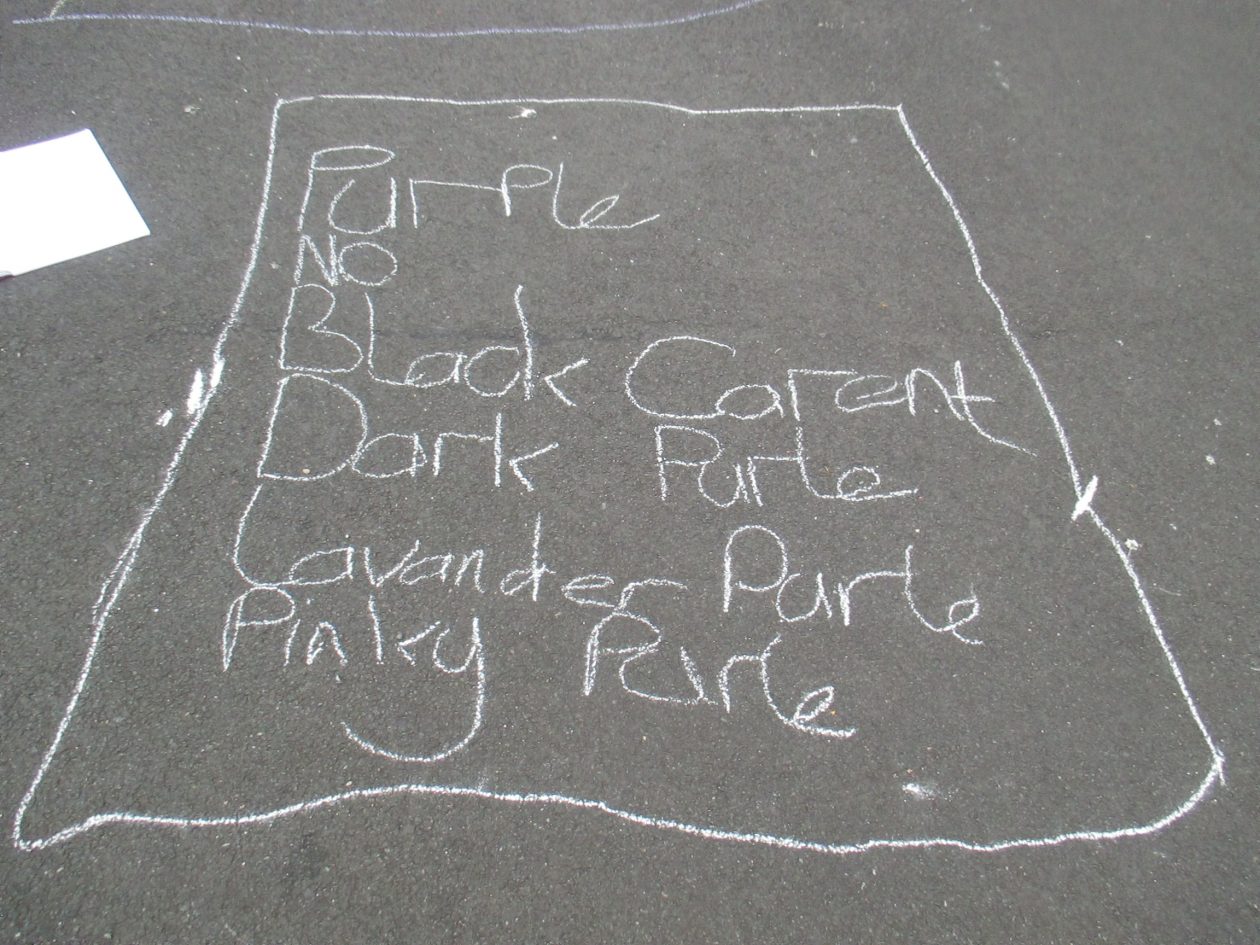 Purple
NO
Black Carent
Dark Purle
Lavander Purle
Pinky Purle